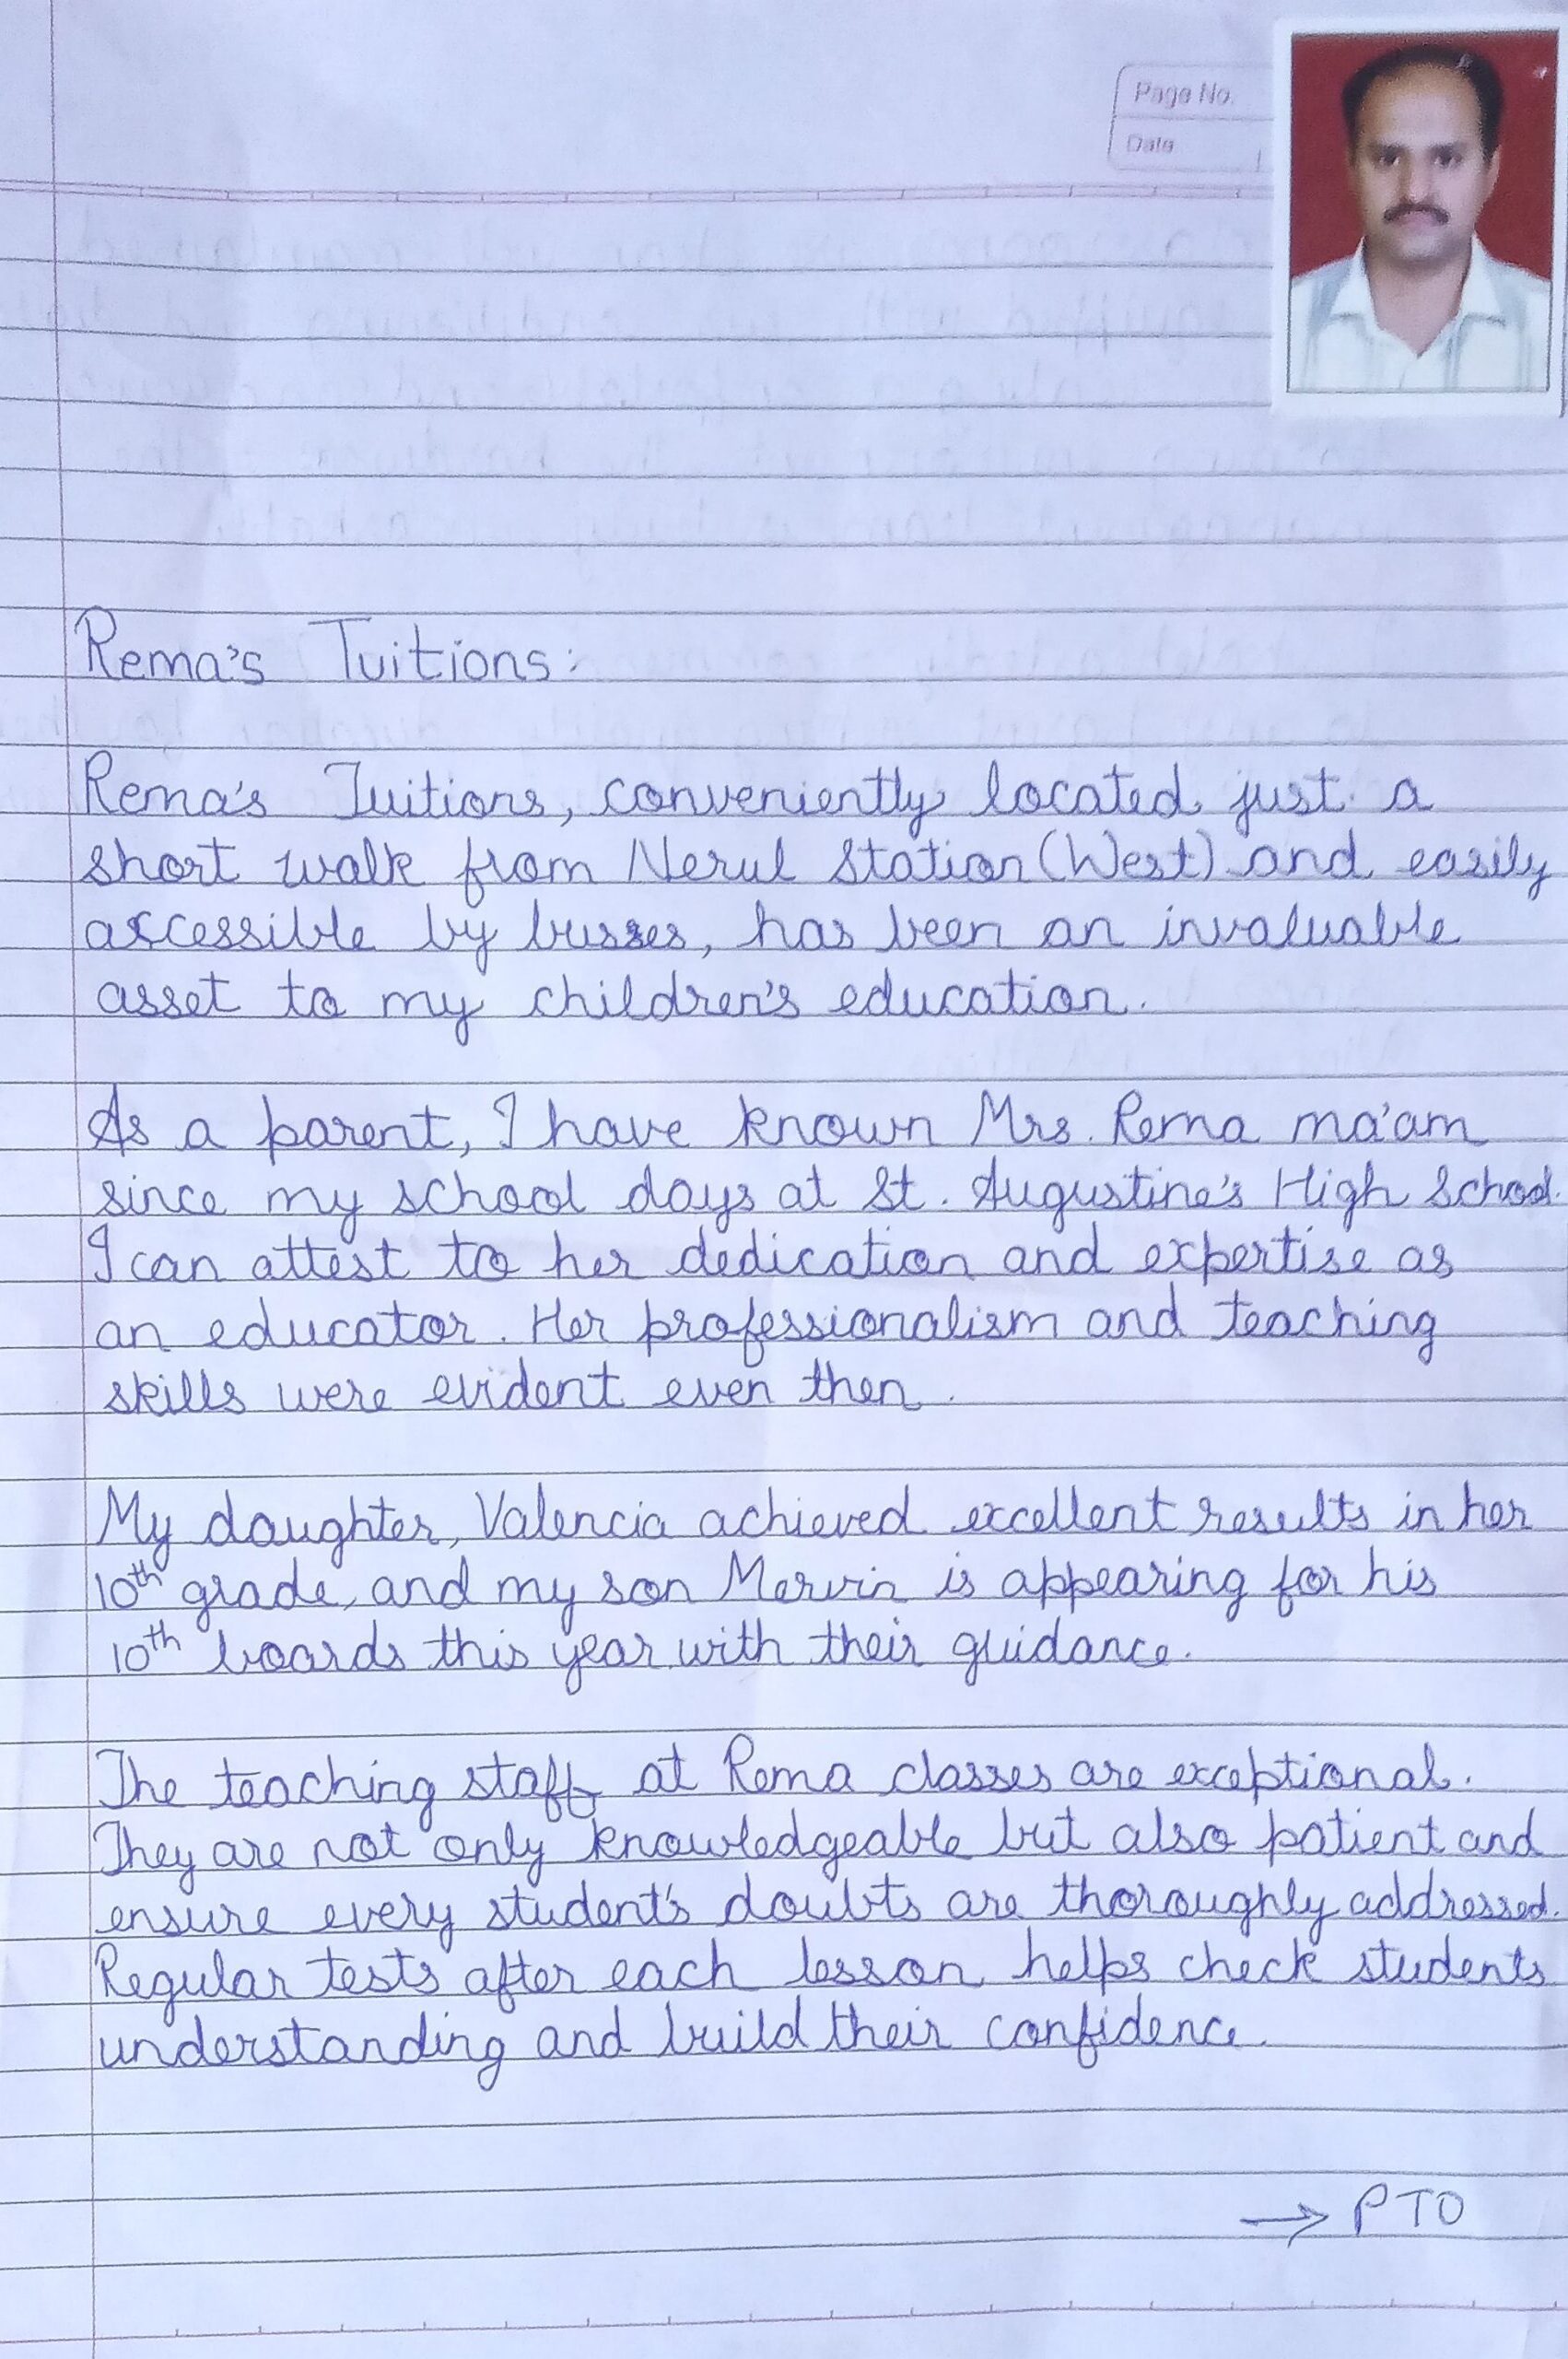 Page No.
Date
Rema's Tuitions:
Rema's Tuitions, conveniently located just a
short walk from Nerul Station (West) and easily
accessible by busses, has been an invaluable
asset to my children's education.
As a parent, I have known Mrs. Rema ma'am
since my school days at St. Augustine's High School.
I can attest to her dedication and expertise as
an educator. Her professionalism and teaching
skills were evident even then.
My daughter, Valencia achieved excellent results in her
10th grade, and my son Mervin is appearing for his
10th boards this year with their guidance.
The teaching staff at Rema classes are exceptional.
They are not only knowledgeable but also patient and
ensure every student's doubts are thoroughly addressed.
Regular tests after each lesson helps check students
understanding and build their confidence.
→ PTO